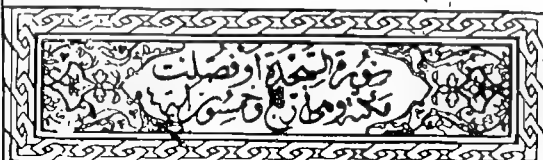 سورة السجدة أو فصلت
مكية وهي وخمسون آية